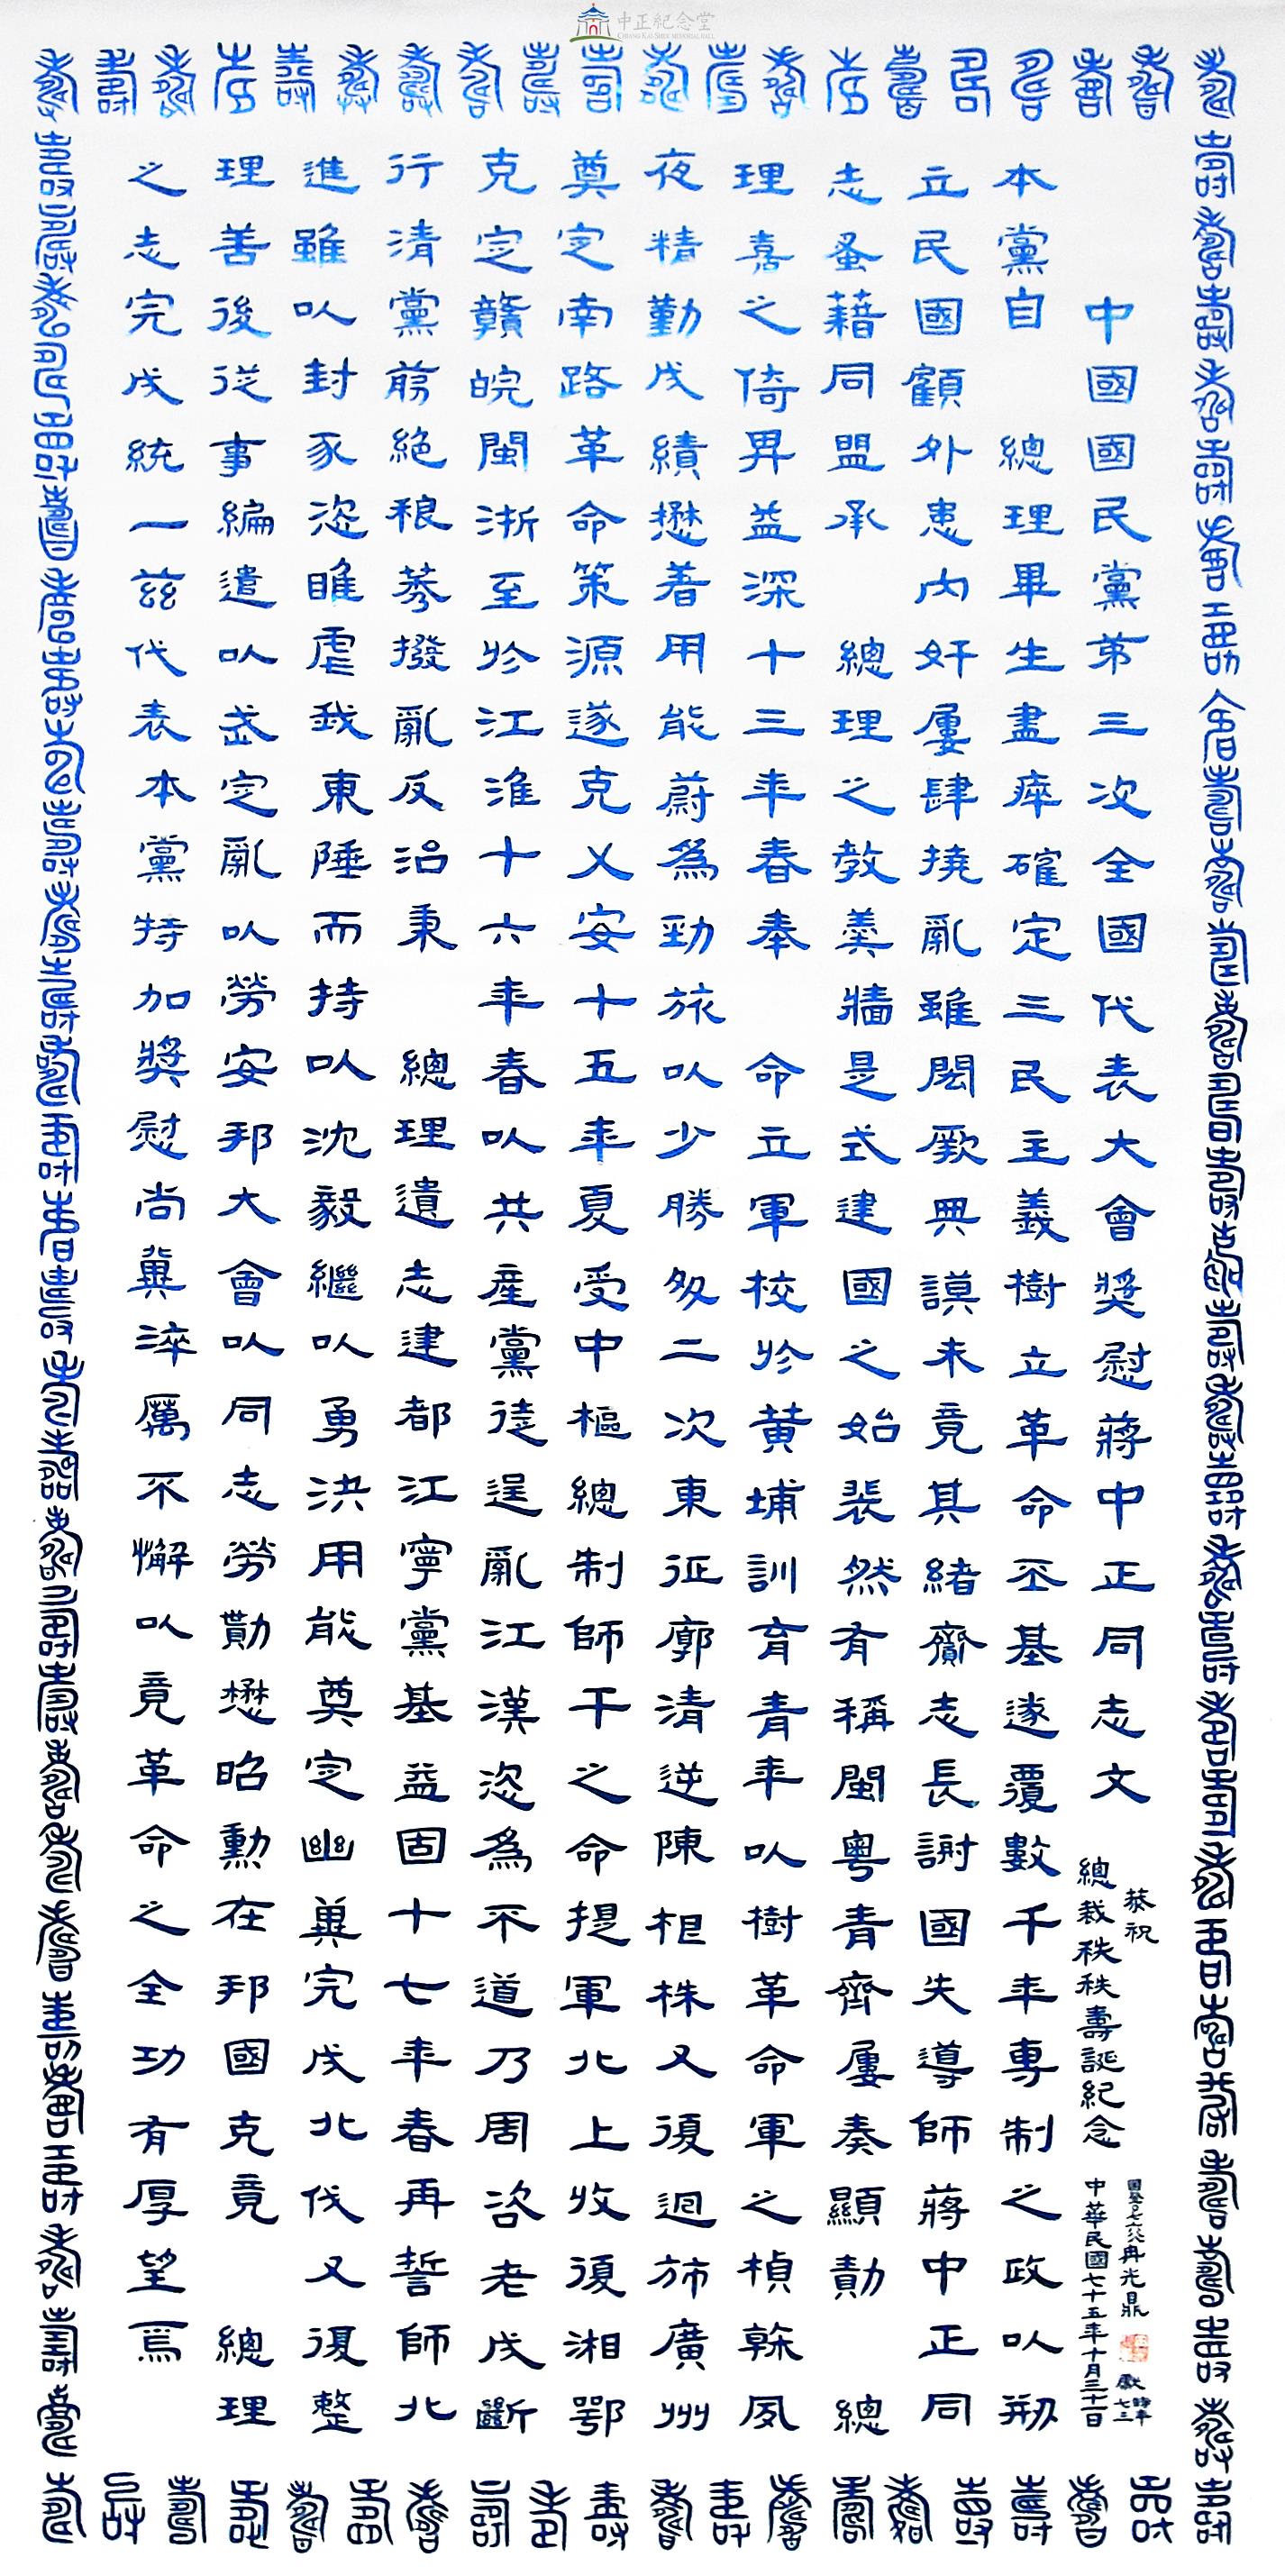 中正紀念堂
CHIANG KAI-SHEK MEMORIAL HALL
中國國民黨第三次全國代表大會獎慰蔣中正同志文
恭祝
總裁秩秩壽誕紀念
冉光鼎
獻
時年七三
中華民國七十五年十月三十一日
本黨自 總理畢生盡瘁確定三民主義樹立革命丕基遂覆數千年專制之政以剏
立民國顧外患內奸屢肆撓亂雖閎厥興謨未竟其緒齎志長謝國失導師蔣中正同
志蚤藉同盟承 總理之教羹牆是式建國之始裴然有稱閩粵青齊屢奏顯勣 總
理嘉之倚畀益深十三年春奉 命立軍校於黃埔訓育青年以樹革命軍之楨榦夙
夜精勤成績懋著用能蔚為勁旅以少勝多二次東征廓清逆陳根株又復迴斾廣州
奠定南路革命策源遂克乂安十五年夏受中樞總制師干之命提軍北上收復湘鄂
克定贛皖閩浙至於江淮十六年春以共產黨徒逞亂江漢恣為不道乃周咨老成斷
行清黨剪絕稂莠撥亂反治秉 總理遺志建都江寧黨基益固十七年春再誓師北
進雖以封豕恣睢虐我東陲而持以沈毅繼以勇決用能奠定幽冀完成北伐又復整
理善後從事編遣以武定亂以勞安邦大會以同志勞勩懋昭勳在邦國克竟 總理
之志完成統一茲代表本黨特加獎慰尚冀淬厲不懈以竟革命之全功有厚望焉